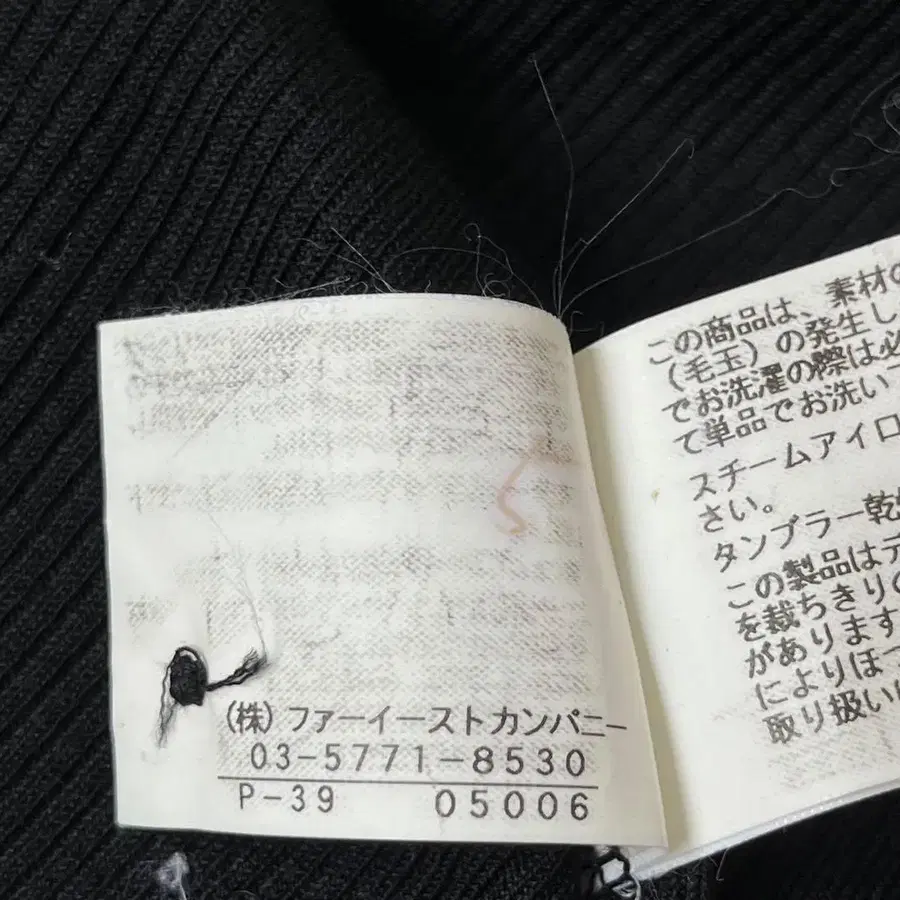 (株)ファーイーストカンパニー
03-5771-8530
P-39 05006
この商品は、素材の
(毛玉)の発生し
でお洗濯の際は必
て単品でお洗い
スチームアイロ
さい。
タンブラー乾
この製品はデ
を裁ちきりの
があります
によりほつ
取り扱い